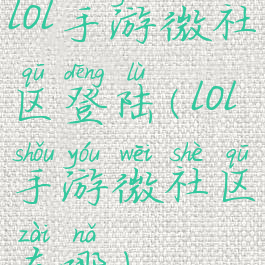 lol手游微社
qū dēng lù
区登陆(lol
shǒu yóu wēi shè qū
手游微社区
zài nǎ
在哪)